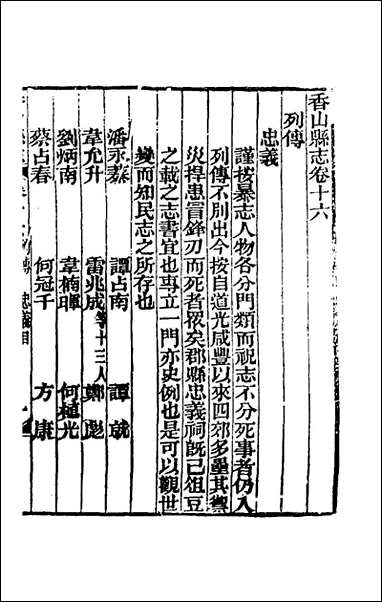 香山縣志卷十六
列傳
忠義
謹按暴志人物各分門類而祝志不分死事者仍入
列傳不別出今按自道光咸豐以來四郊多壘其禦
災捍患冒鋒刃而死者衆矣郡縣忠義祠既已俎豆
之載之志書宜也專立一門亦史例也是可以觀世
變而知民志之所存也
潘永泰 譚占南 譚就
韋允升 雷兆成等十三人 鄭彪
劉炳南 韋楠暉 何植光
蔡占春 何冠千 方康